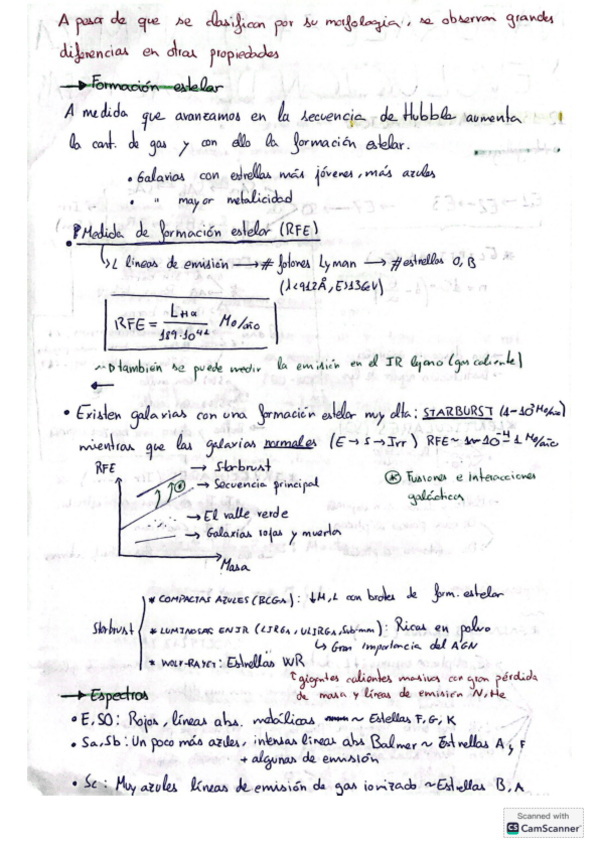 A pesar de que se clasifican por su morfología, se observan grandes
diferencias en otras propiedades
→ Formación estelar
A medida que avanzamos en la secuencia de Hubble aumenta
la cant. de gas y con ello la formación estelar.
• Galaxias con estrellas más jóvenes, más azules
• " mayor metalicidad
• Medida de formación estelar (RFE)
↳ L líneas de emisión → # fotones Lyman → # estrellas O, B
(λ<912Å, E>13GV)
RFE = LHα / 1'19·10⁴² M₀/año
→ también se puede medir la emisión en el IR lejano (gas caliente)
←
• Existen galaxias con una formación estelar muy alta: STARBURST (1-10³ M₀/año)
mientras que las galaxias normales (E → S → Irr) RFE ~ 10⁻⁴-1 M₀/año
RFE
→ Starbrust
→ Secuencia principal
→ El valle verde
→ Galaxias rojas y muerta
Masa
⊛ Fusiones e Interacciones
galácticas
Starbrust
* COMPACTAS AZULES (BCGs): ↓M, L con brotes de form. estelar
* LUMINOSAS EN IR (LIRGs, ULIRGs, Sub/mm): Ricas en polvo
↳ Gran importancia del AGN
* WOLF-RAYET: Estrellas WR
↑ gigantes calientes masivas con gran pérdida
de masa y líneas de emisión N, He
→ Espectros
• E, SO: Rojos, líneas abs. metálicas ~ Estellas F, G, K
• Sa, Sb: Un poco más azules, intensas lineas abs Balmer ~ Estrellas A y F
+ algunas de emisión
• Sc: Muy azules líneas de emisión de gas ionizado ~ Estellas B, A
Scanned with
CS CamScanner